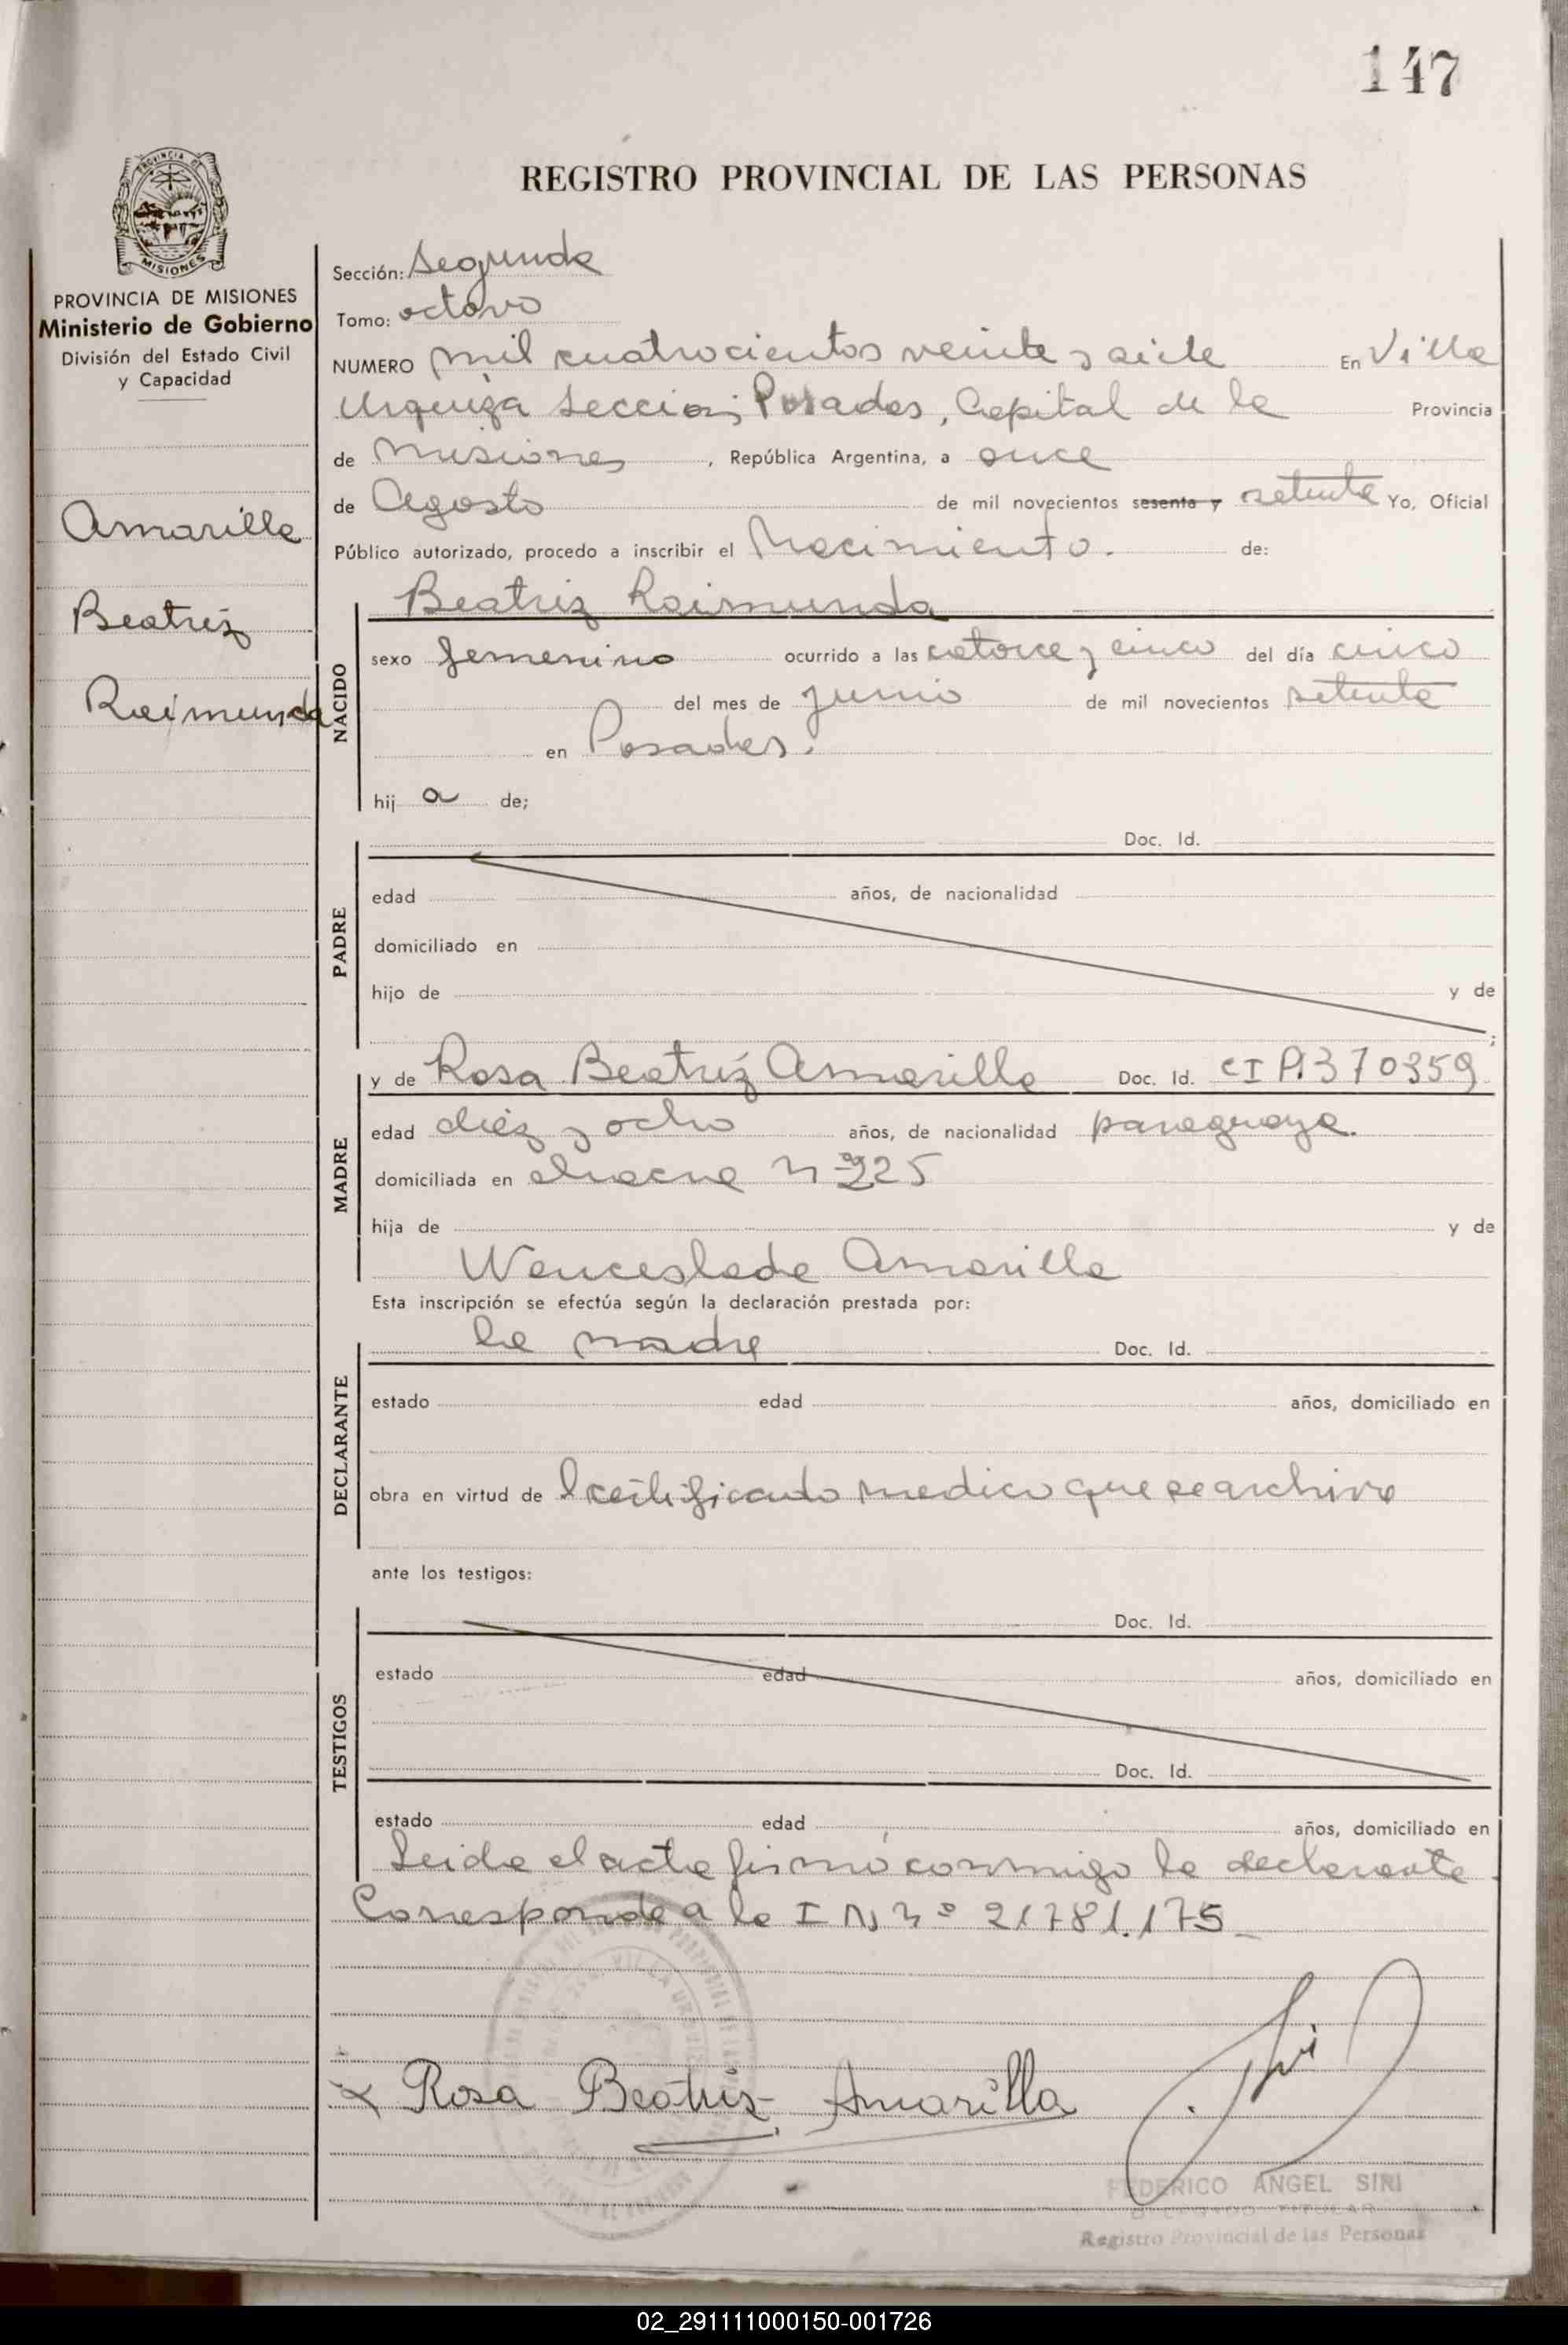 147
PROVINCIA DE
MISIONES
REGISTRO PROVINCIAL DE LAS PERSONAS
PROVINCIA DE MISIONES
Ministerio de Gobierno
División del Estado Civil
y Capacidad
Amarilla
Beatriz
Raimunda
Sección: Segunda
Tomo: octavo
NUMERO mil cuatrocientos veinte y siete En Villa
Urquiza Seccion, Posadas, Capital de la Provincia
de Misiones, República Argentina, a once
de Agosto de mil novecientos sesenta y setenta Yo, Oficial
Público autorizado, procedo a inscribir el Nacimiento. de:
NACIDO
Beatriz Raimunda
sexo femenino ocurrido a las catorce y cinco del día cinco
del mes de Junio de mil novecientos setenta
en Posadas.
hij a de;
PADRE
Doc. Id.
edad años, de nacionalidad
domiciliado en
hijo de y de
;
MADRE
y de Rosa Beatriz Amarilla Doc. Id. CI P.370359
edad diez y ocho años, de nacionalidad paraguaya.
domiciliada en chacra nº 225
hija de y de
Wenceslada Amarilla
Esta inscripción se efectúa según la declaración prestada por:
DECLARANTE
la madre Doc. Id.
estado edad años, domiciliado en
obra en virtud de l certificado medico que se archiva
ante los testigos:
TESTIGOS
Doc. Id.
estado edad años, domiciliado en
Doc. Id.
estado edad años, domiciliado en
Leida el acta firmó conmigo la declarante.
Corresponde a la I N nº 21781.175
Rosa Beatriz Amarilla
FEDERICO ANGEL SIRI
DELEGADO TITULAR
Registro Provincial de las Personas
02_291111000150-001726